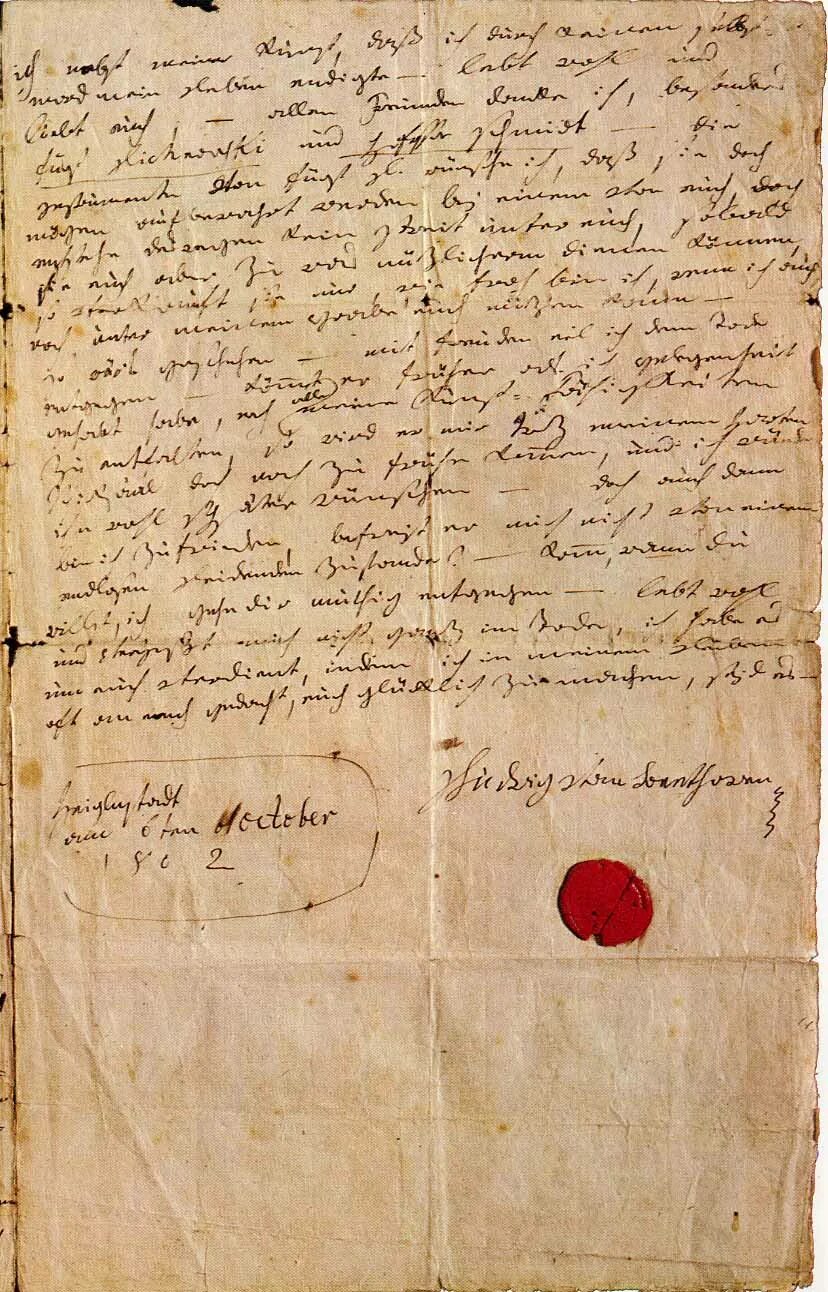 ich nebst meiner Kunst, daß ich durch keinen selbst-
mord mein Leben endigte — lebt wohl und
liebt euch; — allen Freunden danke ich, besonders
fürst Lichnowski und Professor schmidt — die
Instrumente von fürst L. wünsche ich, daß sie doch
mögen aufbewahrt werden bey einem von euch, doch
entstehe deswegen kein streit unter euch, sobald
sie euch aber zu was nüzlicherm dienen können,
so verkauft sie nur, wie froh bin ich, wenn ich auch
noch unter meinem Grabe euch nüzen kann —
so wärs geschehen — mit freuden eil ich dem Tode
entgegen — kömmt er früher als ich gelegenheit
gehabt habe, noch alle meine Kunst-Fähigkeiten
zu entfalten, so wird er mir troz meinem harten
Schicksaal doch noch zu frühe kommen, und ich würde
ihn wohl später wünschen — doch auch dann
bin ich zufrieden, befreyt er mich nicht von einem
endlosen Leidenden Zustande? — Komm, wann du
willst, ich gehe dir muthig entgegen — lebt wohl
und vergeßt mich nicht ganz im Tode, ich habe es
um euch verdient, indem ich in meinem Leben
oft an euch gedacht, euch glücklich zu machen, seyd es —
Ludwig van Beethoven
Heiglnstadt
am 6ten October
1802